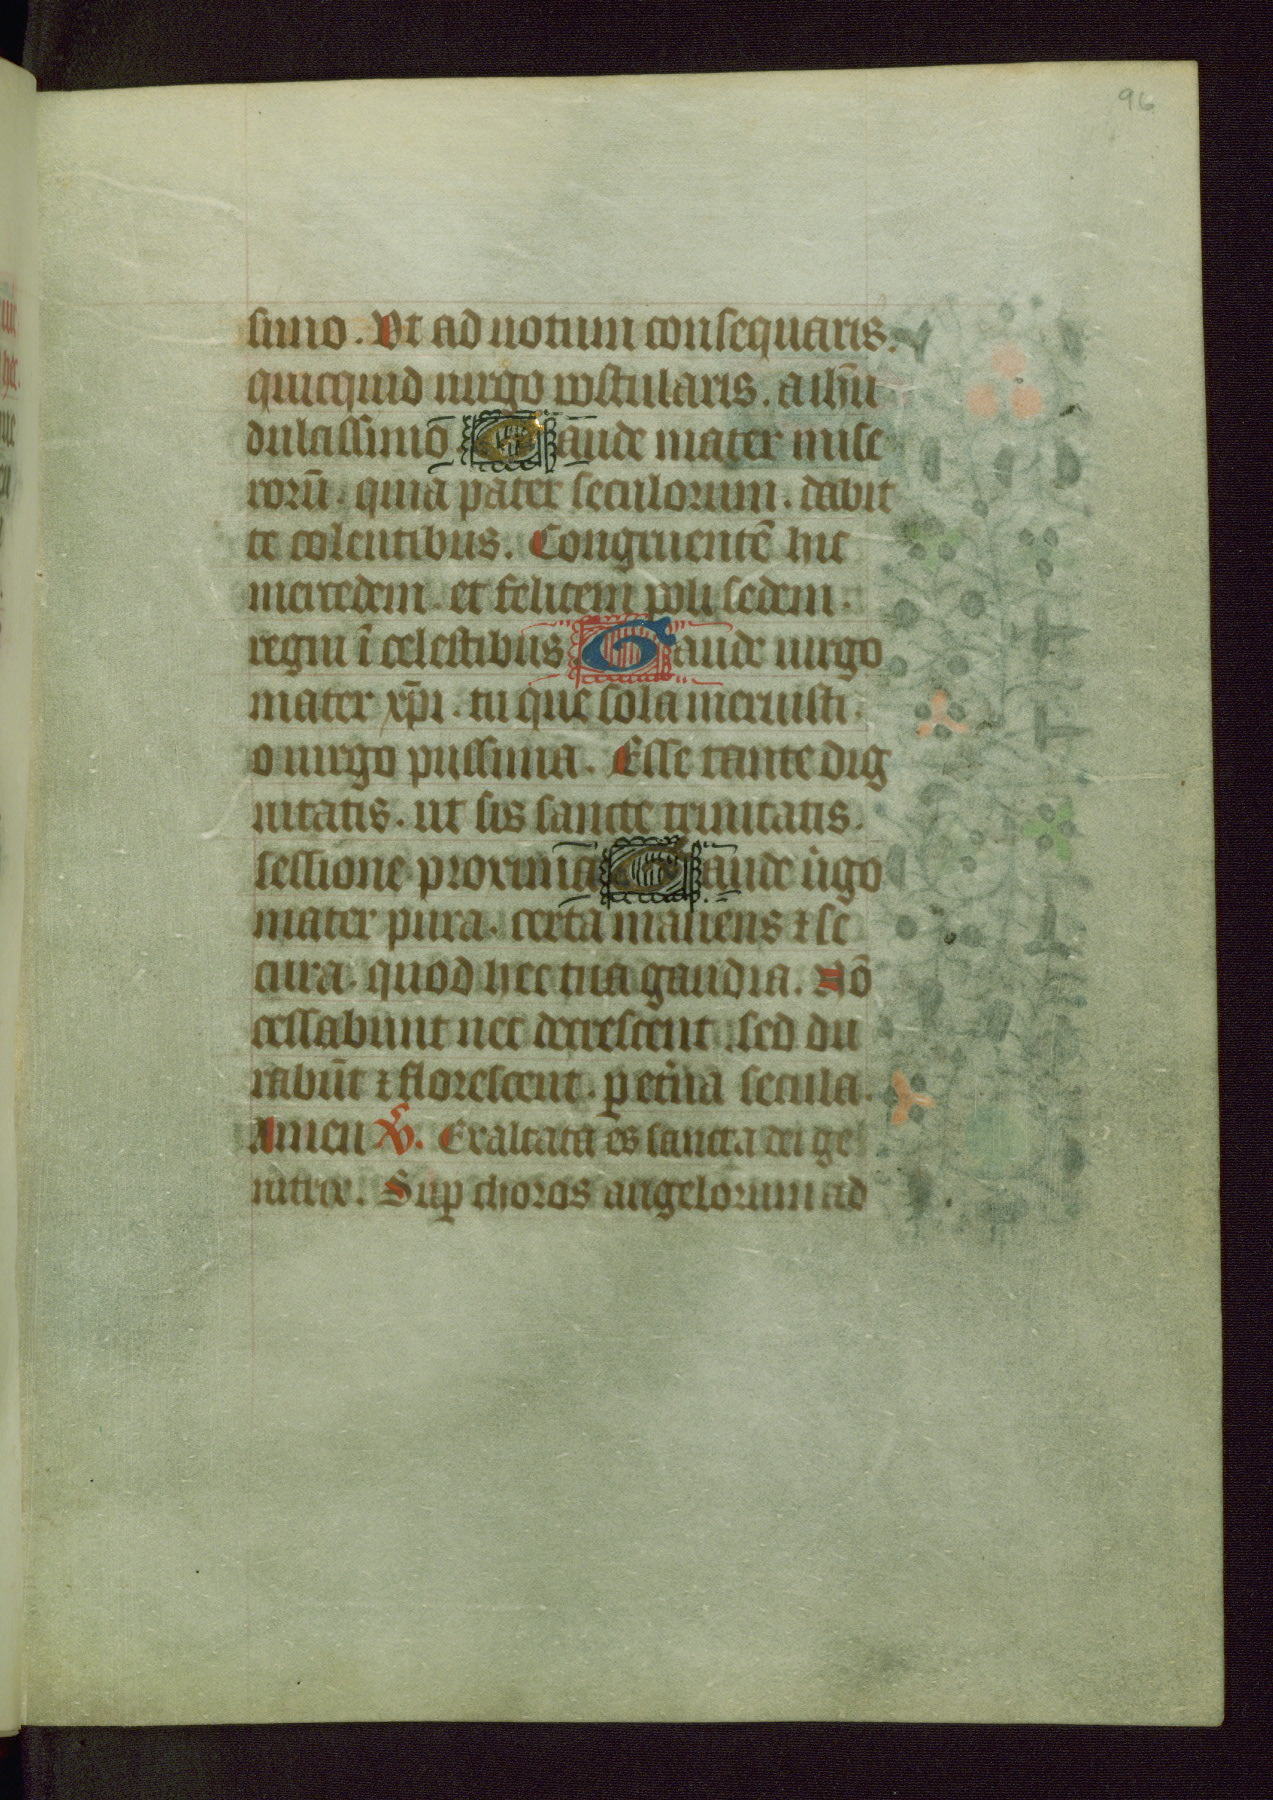 96
simo. Vt ad uotum consequaris.
quicquid uirgo postularis. a ihũ
dulcissimo Gaude mater mise
rorũ. quia pater seculorum. dabit
te colentibus. Congruentẽ hic
mercedem. et felicem poli sedem.
regni ĩ celestibus Gaude uirgo
mater xp̃i. tu que sola meruisti.
o uirgo pijssima. Esse tante dig
nitatis. ut sis sancte trinitatis.
sessione proxima Gaude u̇igo
mater pura. certa manens ⁊ se
cura. quod hec tua gaudia. Nõ
cessabunt nec decrescent. sed du
rabũt ⁊ florescent. ꝑ et̾na secula.
Amen ℣. Exaltata es sancta dei ge
nitrix. Suꝑ choros angelorum ad